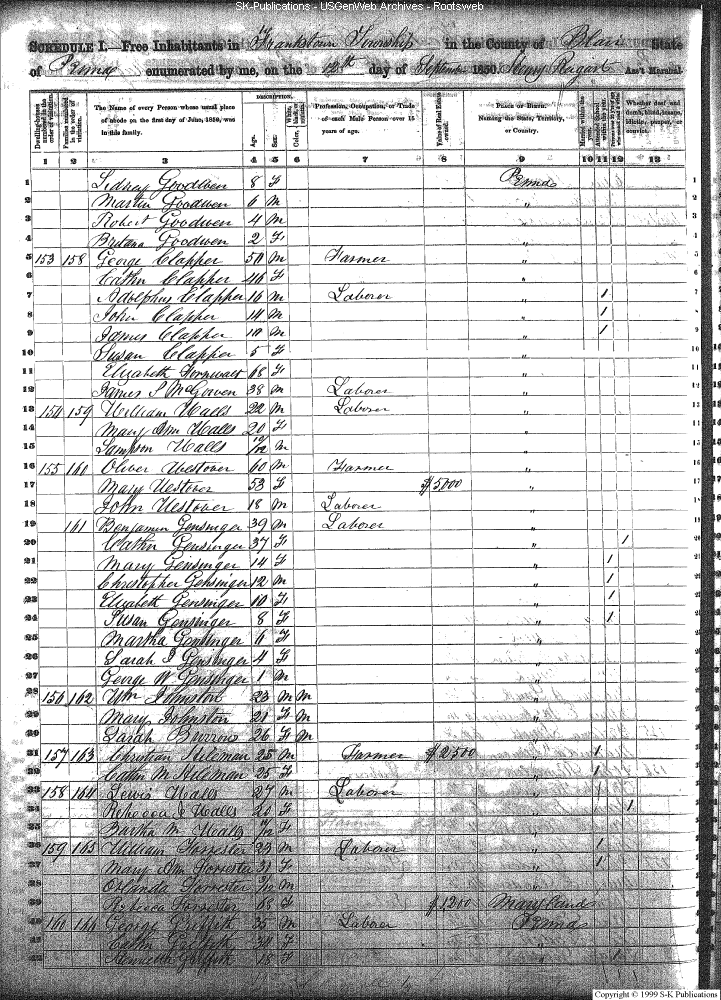 SK-Publications - USGenWeb Archives - Rootsweb
SCHEDULE I.—Free Inhabitants in Frankstown Township in the County of Blair State
of Penna enumerated by me, on the 12th day of September 1850. Ass't Marshal
Dwelling-houses numbered in the order of visitation.
Families numbered in the order of visitation.
The Name of every Person whose usual place of abode on the first day of June, 1850, was in this family.
DESCRIPTION.
Age.
Sex.
White, black, or mulatto.
Color,
Profession, Occupation, or Trade of each Male Person over 15 years of age.
Value of Real Estate owned.
Place of Birth. Naming the State, Territory, or Country.
Married within the year.
Attended School within the year.
Whether deaf and dumb, blind, insane, idiotic, pauper, or convict.
1 2 3 4 5 6 7 8 9 10 11 12 13
1 Sidney Goodwen 8 F Penna 1
2 Martin Goodwen 6 M " 2
3 Robert Goodwen 4 M " 3
4 Goodwen 2 F " 4
5 153 158 George Clapper 50 M Farmer " 5
6 Cathn Clapper 46 F " 6
7 Adolphus Clapper 16 M Laborer " 1 7
8 John Clapper 14 M " 1 8
9 James Clapper 10 M " 1 9
10 Susan Clapper 5 F " 10
11 Elizabeth Fornwalt 68 F " 11
12 James S McGowen 38 M Laborer " 12
13 154 159 William Walls 22 M Laborer " 13
14 Mary Ann Walls 20 F " 14
15 Sampson Walls 10/12 M " 15
16 155 160 Oliver Westover 60 M Farmer " 16
17 Mary Westover 53 F $5,000 " 17
18 John Westover 18 M Laborer " 18
19 161 Benjamin Gensinger 39 M Laborer " 19
20 Cathn Gensinger 37 F " 1 20
21 Mary Gensinger 14 F " 1 21
22 Christopher Gensinger 12 M " 1 22
23 Elizabeth Gensinger 10 F " 1 23
24 Susan Gensinger 8 F " 1 24
25 Martha Gensinger 6 F " 25
26 Sarah J Gensinger 4 F " 26
27 George W Gensinger 1 M " 27
28 156 162 Wm Johnston 23 M M " 28
29 Mary Johnston 21 F M " 29
30 Sarah 26 F M " 30
31 157 163 Christian Hileman 25 M Farmer $2500 " 1 31
32 Cathn M Hileman 25 F " 1 32
33 158 164 Lewis Walls 27 M Laborer " 33
34 Rebecca J Walls 20 F " 1 34
35 M Walls F " 35
36 159 165 William Forrester 23 M Laborer " 1 36
37 Mary Ann Forrester 31 F " 1 37
38 Orlanda Forrester M " 38
39 Rebecca Forrester 68 F $1200 Maryland 39
40 160 166 George Griffith 35 M Laborer Penna 40
41 Cathn Griffith F " 41
42 Griffith 18 F " 42
Copyright © 1999 S-K Publications